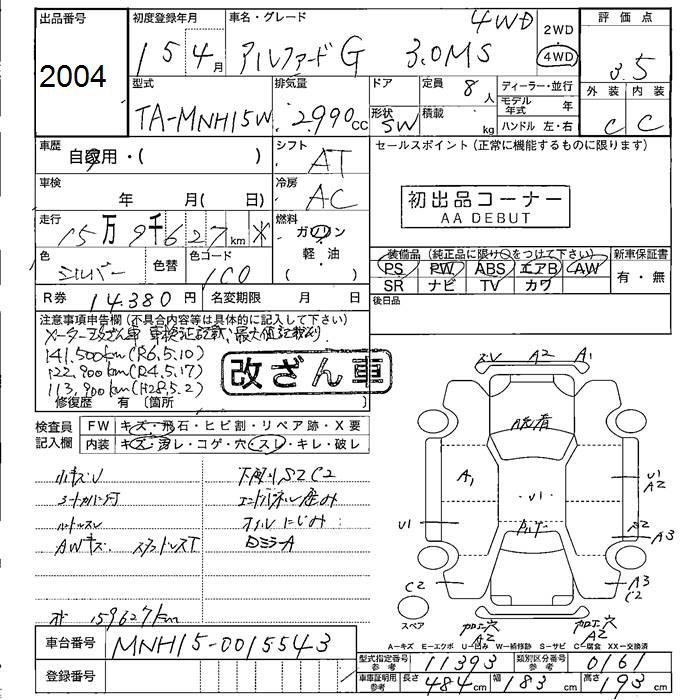 出品番号
2004
初度登録年月
15 4月
車名・グレード
アルファード G 3.0MS
4WD
2WD
4WD
評価点
3.5
外装 内装
C C
型式
TA-MNH15W
排気量
2990cc
ドア
形状
SW
定員 8人
積載 kg
ディーラー・並行
モデル年式 年
ハンドル 左・右
車歴
自家用・( )
シフト
AT
車検
年 月( 日)
冷房
AC
セールスポイント(正常に機能するものに限ります)
初出品コーナー
AA DEBUT
走行
15万9千627km ※
燃料
ガソリン
軽・油
( )
色
シルバー
色替
色コード
1C0
装備品(純正品に限り○をつけて下さい)
PS PW ABS エアB AW
SR ナビ TV カワ
新車保証書
有・無
R券 14,380円
名変期限 月 日
後日品
注意事項申告欄(不具合内容等は具体的に記入して下さい)
メーター改ざん車 車検証記載 最大値記載あり
141,500km(R6.5.10)
122,900km(R4.5.17)
113,900km(H28.5.2)
改ざん車
修復歴 有〔箇所 〕
検査員記入欄
FW キズ・飛石・ヒビ割・リペア跡・X要
内装 キズ・汚レ・コゲ・穴・スレ・キレ・破レ
小キズU
下廻りS2C2
シートカバー付
エンドパネル歪み
ハンドルスレ
オイルにじみ
AWキズ スタッドレスT
DミラーA
159627km
車台番号
MNH15-0015543
登録番号
A2 A1
A1
U1
U1
A2
U1
A2
A3
C2
A3
C2
スペア
加工穴
A2
加工穴
A2
A-キズ E-エクボ U-凹み W-補修跡 S-サビ C-腐食 XX-交換済
型式指定番号 参考
11393
類別区分番号 参考
0161
車庫証明用 参考
長さ 484cm 幅 183cm 高さ 193cm